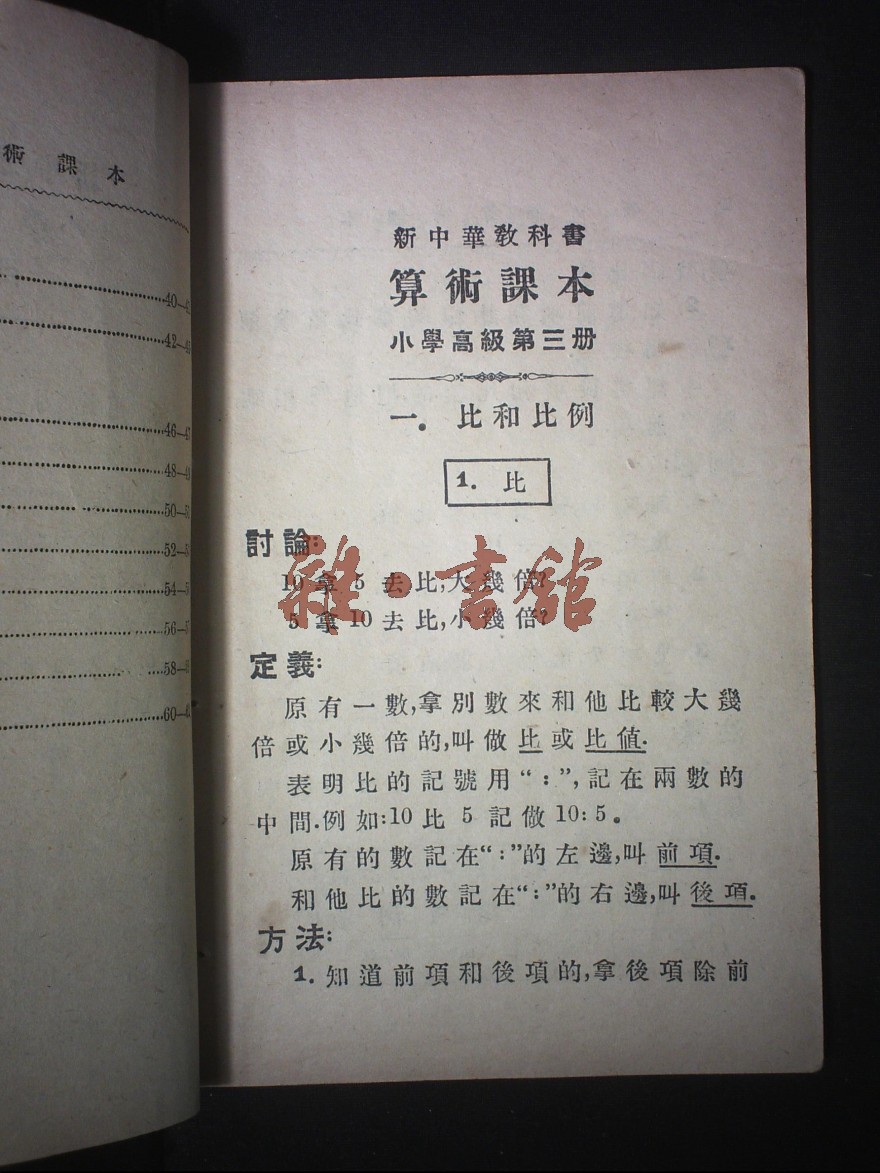 術課本
40—4
42—4
46—47
48—4
50—5
52—5
54—5
56—5
58—
60—6
新中華教科書
算術課本
小學高級第三册
一. 比和比例
1. 比
討論:
10拿5去比,大幾倍?
5拿10去比,小幾倍?
雜·書館
定義:
原有一數,拿別數來和他比較大幾
倍或小幾倍的,叫做比或比值.
表明比的記號用“:”,記在兩數的
中間.例如:10比5記做10:5。
原有的數記在“:”的左邊,叫前項.
和他比的數記在“:”的右邊,叫後項.
方法:
1. 知道前項和後項的,拿後項除前